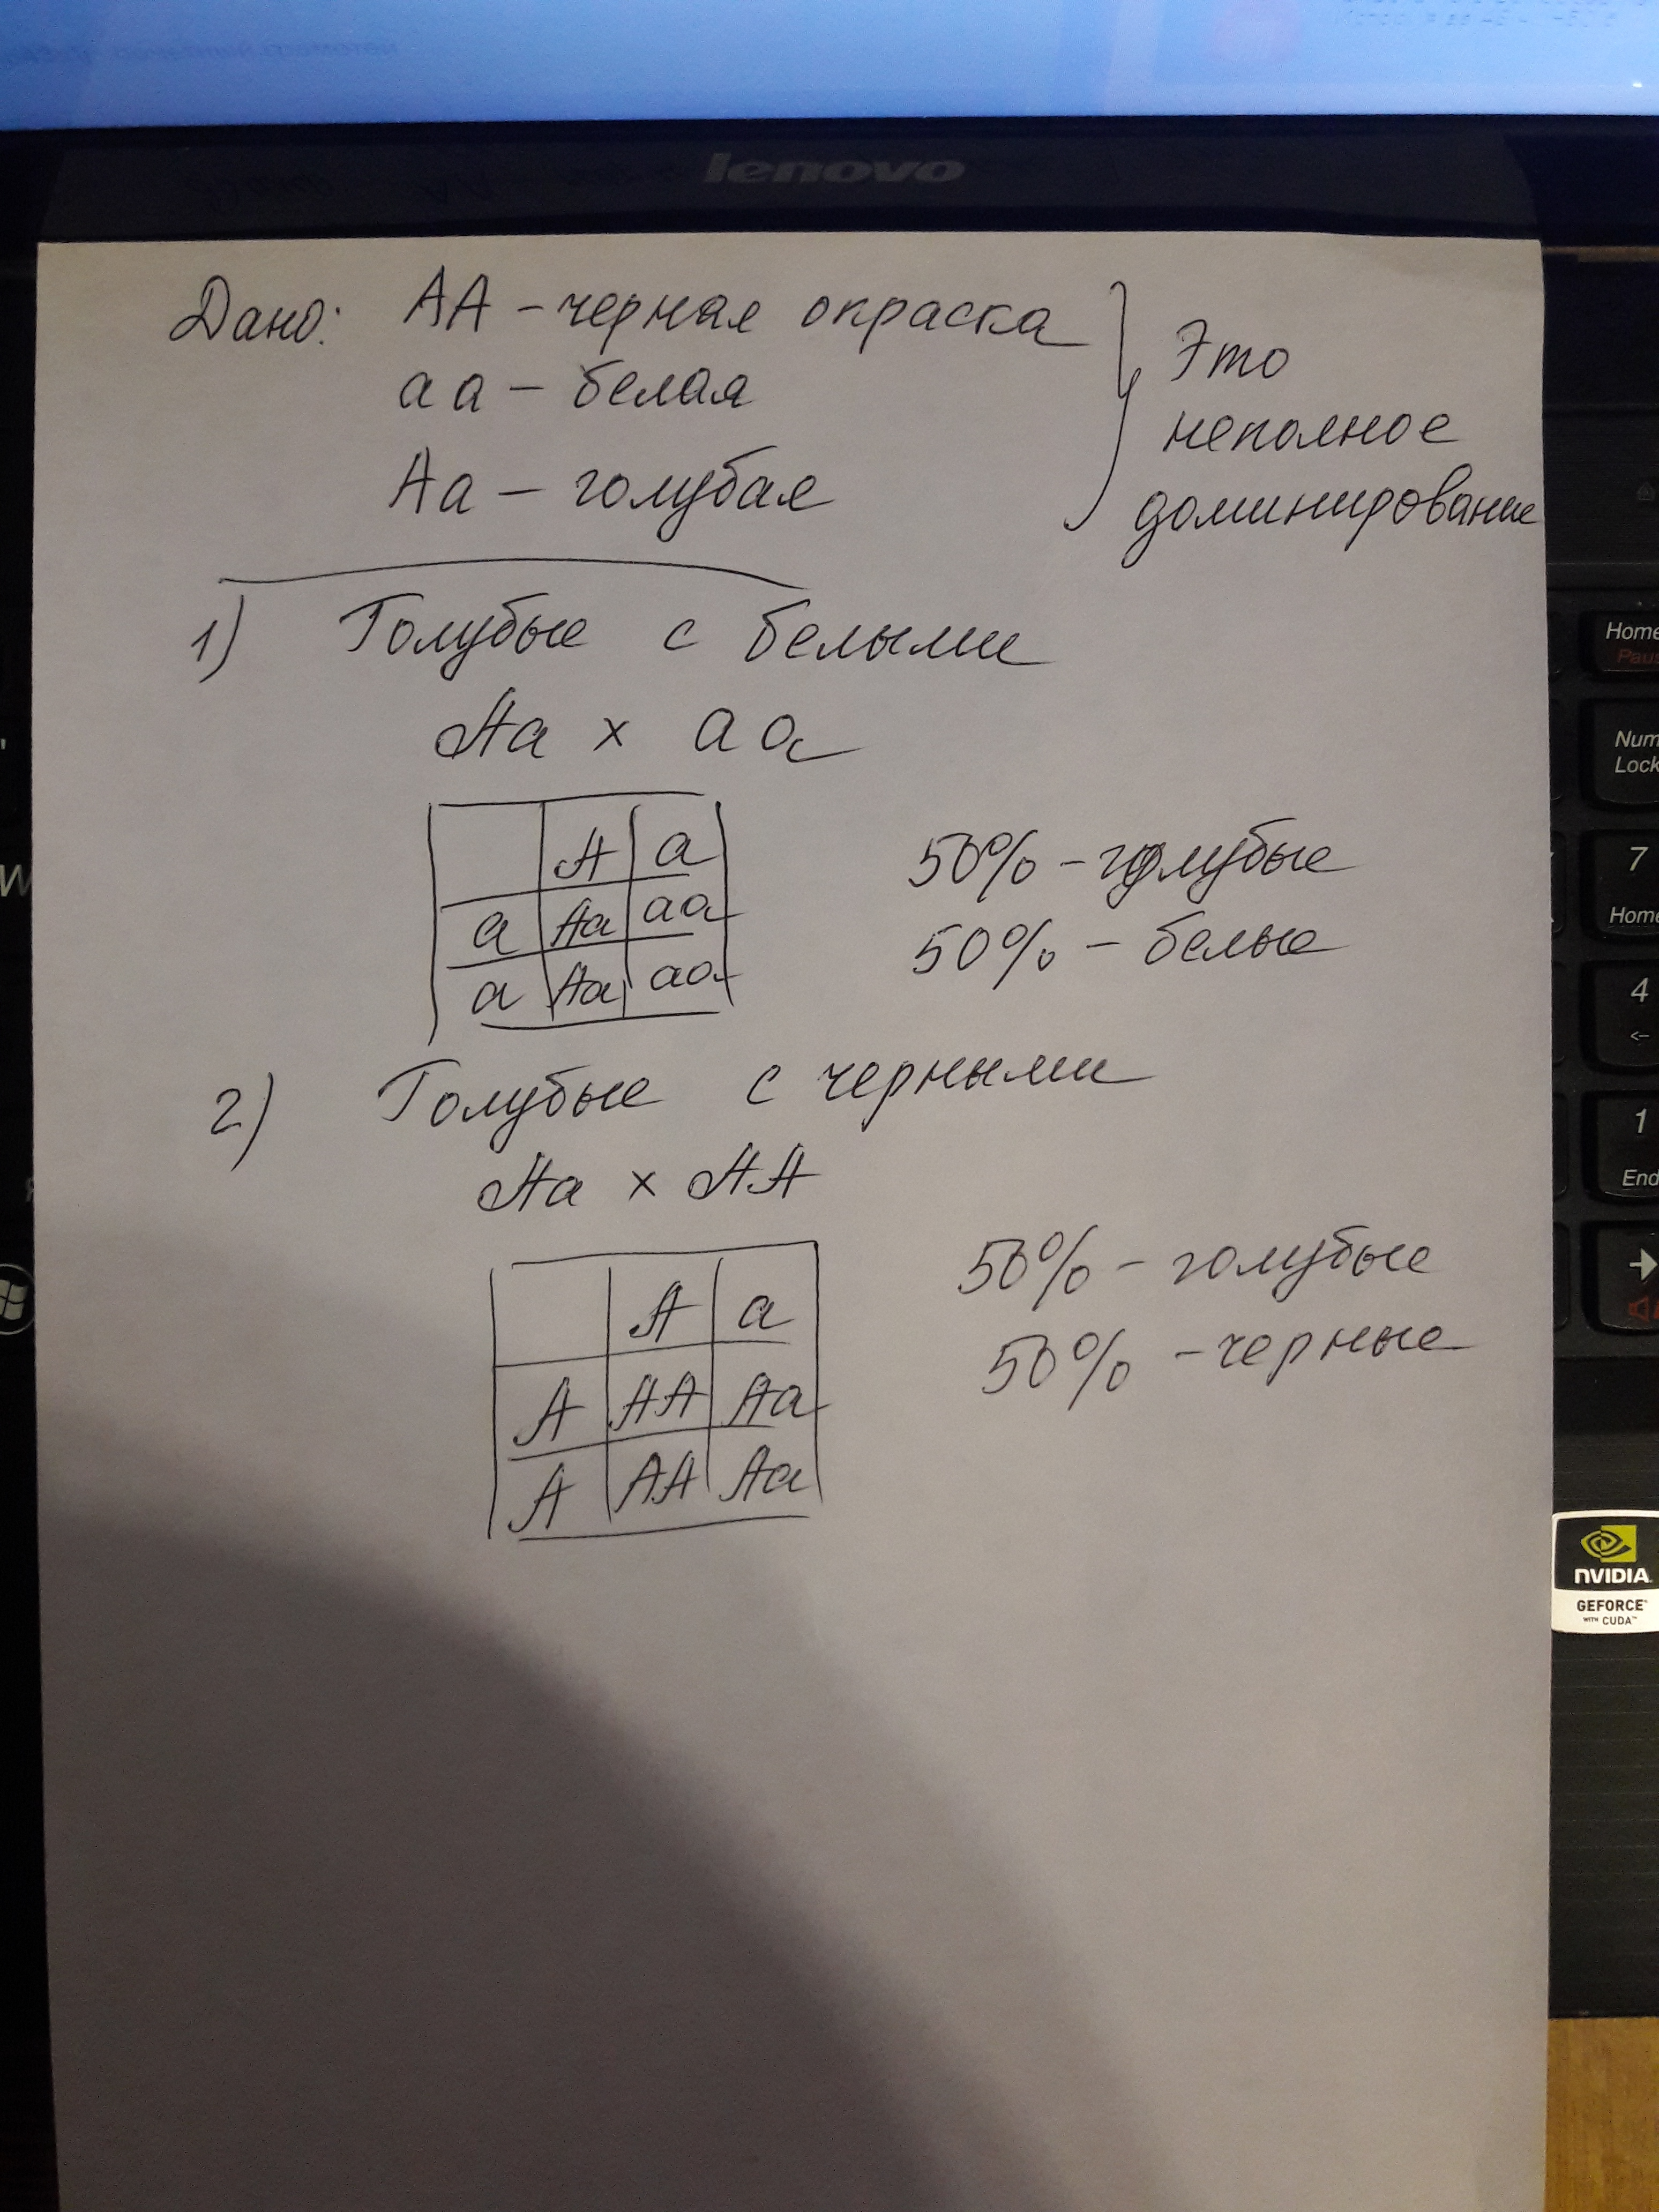 lenovo
Дано: АА – черная окраска
аа – белая
Аа – голубая
Это
неполное
доминирование
1) Голубые с белыми
Аа х аа
А а
а Аа аа
а Аа аа
50% – голубые
50% – белые
2) Голубые с черными
Аа х АА
А а
А АА Аа
А АА Аа
50% – голубые
50% – черные
Home
Num
Lock
7
Home
4
←
1
End
W
NVIDIA
GEFORCE
WITH CUDA